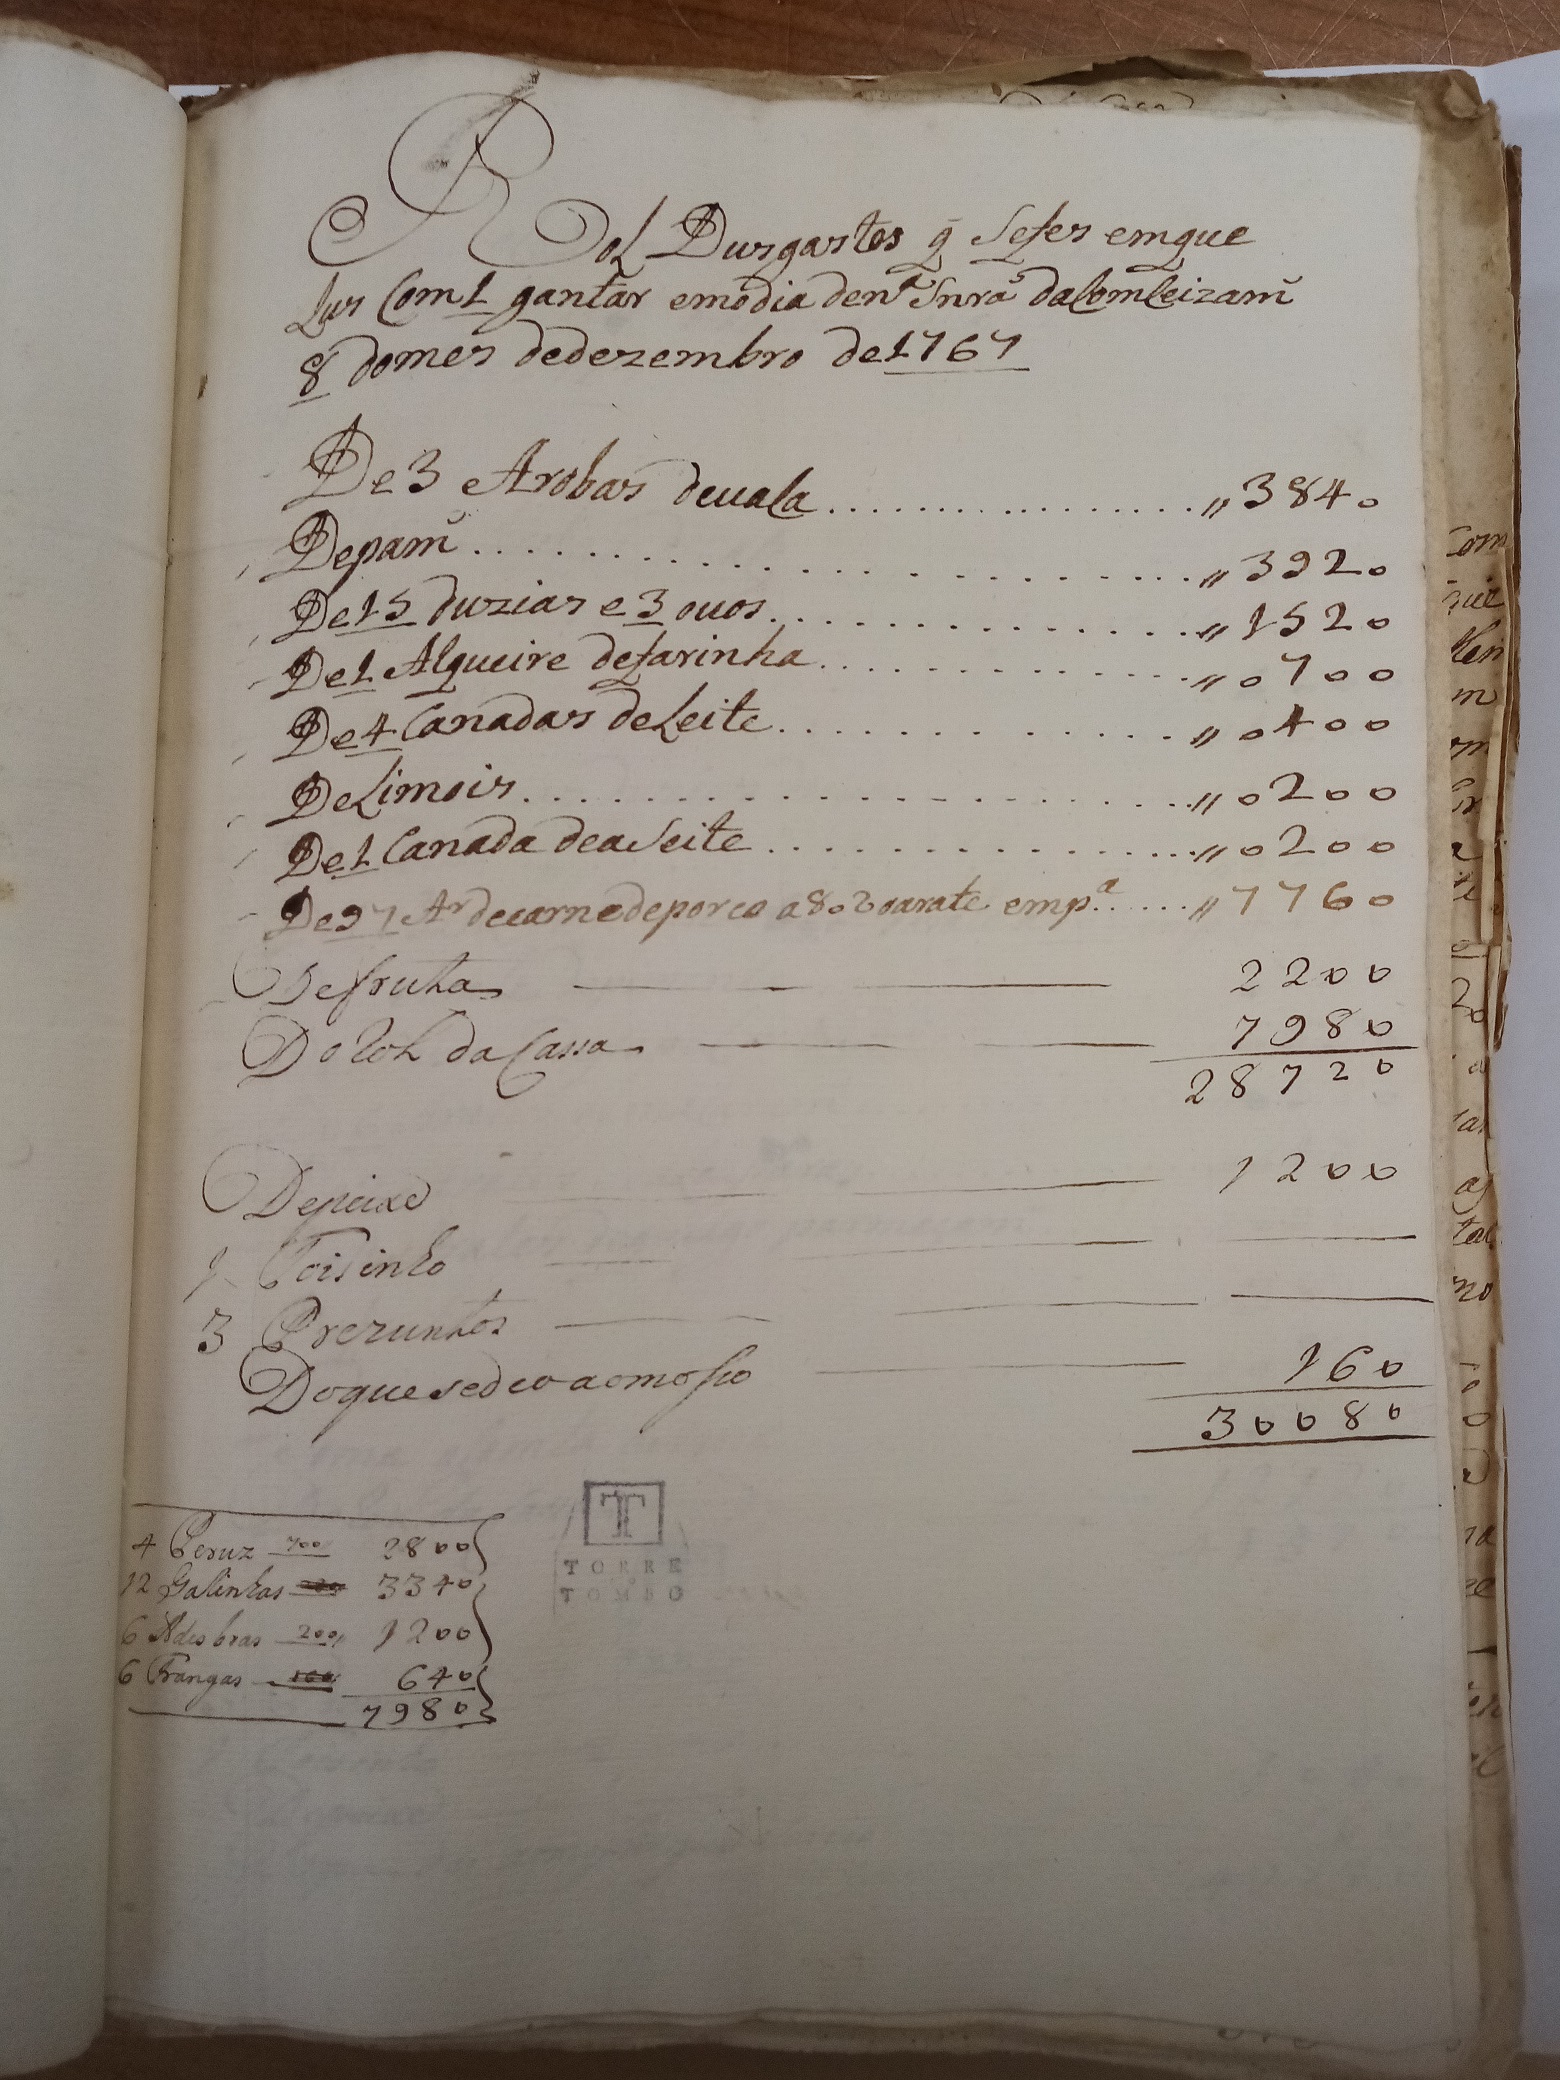 Rol Dus gastos q̃ Sefes emque
Lus Com 1 gantar emodia den.ª Snrã da Comseizam̃
8 domes dedezembro de 1767
De 3 Arobas devaca .......... „ 3840
Depam̃ .......... „ 3920
De 15 duzias e 3 ouos .......... „ 1520
De 1 Alqueire defarinha .......... „ 0700
De 4 Canadas deLeite .......... „ 0400
DeLimois .......... „ 0200
De 1 Canada deaSeite .......... „ 0200
De 97 Ar decarnedeporco a 80 emp.ª ...... „ 7760
Defruta — 2200
Do Rol da Cassa — 7980
28720
Depeixe — 1200
1 Toisinho —
3 Prezuntos —
Doquesedeo aomoSso — 160
30080
4 Peruz 700 2800
12 Galinhas 3340
6 Ades bras 200 1200
6 Frangas 160 640
7980
T
TORRE
TOMBO